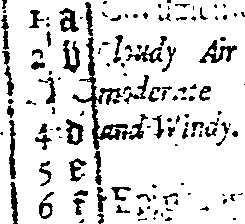 1 a
2 b Cloudy Air
moderate
4 d and Windy.
5 e
6 f